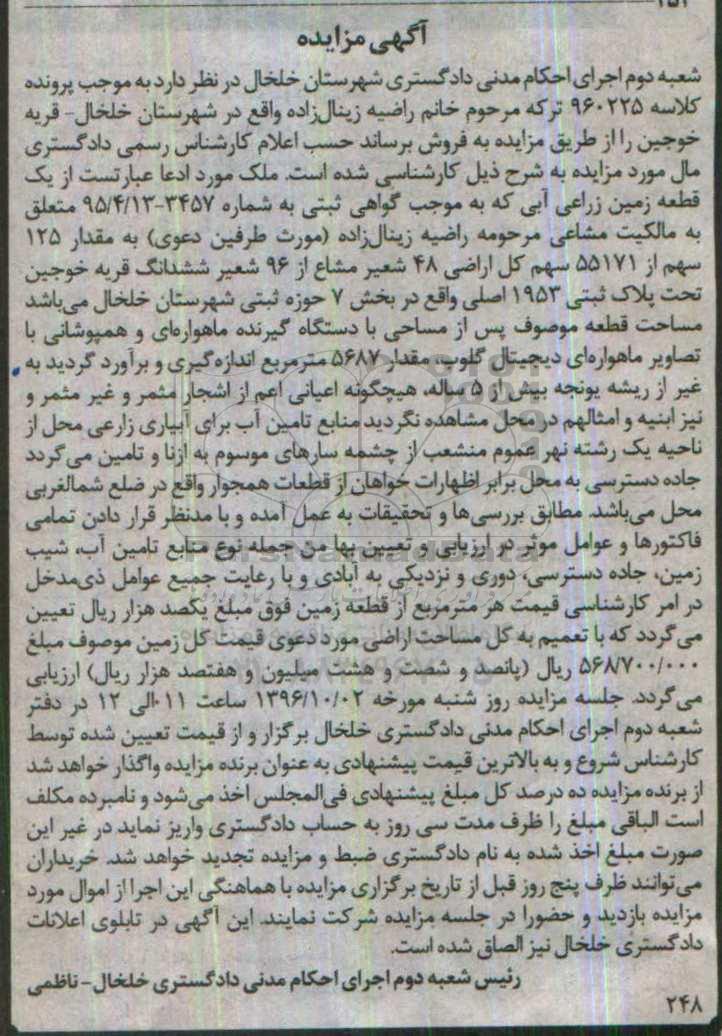 ۱۵۲
آگهی مزایده
شعبه دوم اجرای احکام مدنی دادگستری شهرستان خلخال در نظر دارد به موجب پرونده
کلاسه ۹۶۰۲۲۵ ترکه مرحوم خانم راضیه زینال‌زاده واقع در شهرستان خلخال- قریه
خوجین را از طریق مزایده به فروش برساند حسب اعلام کارشناس رسمی دادگستری
مال مورد مزایده به شرح ذیل کارشناسی شده است. ملک مورد ادعا عبارتست از یک
قطعه زمین زراعی آبی که به موجب گواهی ثبتی به شماره ۳۴۵۷-۹۵/۴/۱۳ متعلق
به مالکیت مشاعی مرحومه راضیه زینال‌زاده (مورث طرفین دعوی) به مقدار ۱۲۵
سهم از ۵۵۱۷۱ سهم کل اراضی ۴۸ شعیر مشاع از ۹۶ شعیر ششدانگ قریه خوجین
تحت پلاک ثبتی ۱۹۵۳ اصلی واقع در بخش ۷ حوزه ثبتی شهرستان خلخال می‌باشد
مساحت قطعه موصوف پس از مساحی با دستگاه گیرنده ماهواره‌ای و همپوشانی با
تصاویر ماهواره‌ای دیجیتال گلوب، مقدار ۵۶۸۷ مترمربع اندازه‌گیری و برآورد گردید به
غیر از ریشه یونجه بیش از ۵ ساله، هیچگونه اعیانی اعم از اشجار مثمر و غیر مثمر و
نیز ابنیه و امثالهم در محل مشاهده نگردید منابع تامین آب برای آبیاری زارعی محل از
ناحیه یک رشته نهر عموم منشعب از چشمه سارهای موسوم به ازنا و تامین می‌گردد
جاده دسترسی به محل برابر اظهارات خواهان از قطعات همجوار واقع در ضلع شمالغربی
محل می‌باشد. مطابق بررسی‌ها و تحقیقات به عمل آمده و با مدنظر قرار دادن تمامی
فاکتورها و عوامل موثر در ارزیابی و تعیین بها من جمله نوع منابع تامین آب، شیب
زمین، جاده دسترسی، دوری و نزدیکی به آبادی و با رعایت جمیع عوامل ذی‌مدخل
در امر کارشناسی قیمت هر مترمربع از قطعه زمین فوق مبلغ یکصد هزار ریال تعیین
می‌گردد که با تعمیم به کل مساحت اراضی مورد دعوی قیمت کل زمین موصوف مبلغ
۵۶۸/۷۰۰/۰۰۰ ریال (پانصد و شصت و هشت میلیون و هفتصد هزار ریال) ارزیابی
می‌گردد. جلسه مزایده روز شنبه مورخه ۱۳۹۶/۱۰/۰۲ ساعت ۱۱ الی ۱۲ در دفتر
شعبه دوم اجرای احکام مدنی دادگستری خلخال برگزار و از قیمت تعیین شده توسط
کارشناس شروع و به بالاترین قیمت پیشنهادی به عنوان برنده مزایده واگذار خواهد شد
از برنده مزایده ده درصد کل مبلغ پیشنهادی فی‌المجلس اخذ می‌شود و نامبرده مکلف
است الباقی مبلغ را ظرف مدت سی روز به حساب دادگستری واریز نماید در غیر این
صورت مبلغ اخذ شده به نام دادگستری ضبط و مزایده تجدید خواهد شد. خریداران
می‌توانند ظرف پنج روز قبل از تاریخ برگزاری مزایده با هماهنگی این اجرا از اموال مورد
مزایده بازدید و حضورا در جلسه مزایده شرکت نمایند. این آگهی در تابلوی اعلانات
دادگستری خلخال نیز الصاق شده است.
رئیس شعبه دوم اجرای احکام مدنی دادگستری خلخال- ناظمی
۲۴۸